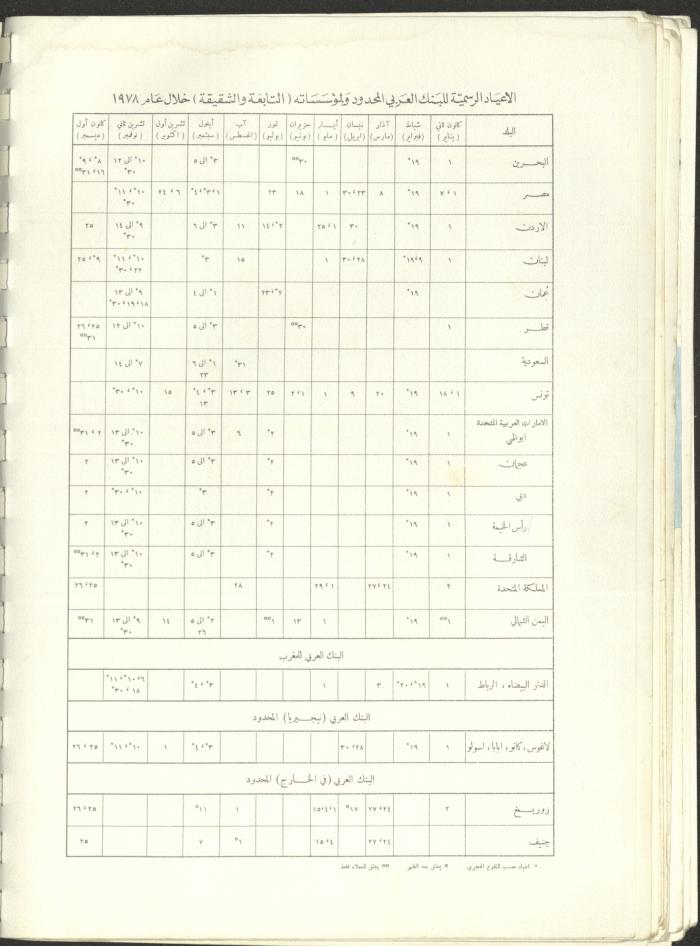 الاعياد الرسمية للبنك العربي المحدود ولمؤسساته (التابعة والشقيقة) خلال عام ١٩٧٨
البلد كانون ثاني (يناير) شباط (فبراير) آذار (مارس) نيسان (ابريل) أيار (مايو) حزيران (يونيو) تموز (يوليو) آب (اغسطس) أيلول (سبتمبر) تشرين أول (اكتوبر) تشرين ثاني (نوفمبر) كانون أول (ديسمبر)
البحرين ١ ١٩* ٣٠°° ٣* الى ٥ ١٠* الى ١٢ ٨* و ٩*
٣٠* ١٦ و ٣١°°
مصر ١ و ٧ ١٩* ٨ ٢٣ و ٣٠ ١ ١٨ ٢٣ ١ و ٣* و ٤* ٦ و ٢٤ ١٠* و ١١*
٣٠*
الاردن ١ ١٩* ٣٠ ١ و ٢٥ ٢* و ١٤ ١١ ٣* الى ٦ ٩* الى ١٤ ٢٥
٣٠*
لبنان ١ ٩ و ١٩* ٢٨ و ٣٠ ١ ١٥ ٣* ١٠* و ١١* ٩* و ٢٥
٢٢ و ٣٠*
عُمان ١٩* ٢* و ٢٣ ١* الى ٤ ٩* الى ١٣
١٨ و ١٩ و ٣٠*
قطر ١ ٣٠°° ٣* الى ٥ ١٠* الى ١٢ ٢٥ و ٢٦
٣١°°
السعودية ٣١* ١* الى ٦ ٧* الى ١٤
٢٣
تونس ١ و ١٨ ١٩* ٢٠ ٩ ١ ١ و ٢ ٢٥ ٣ و ١٣ ٣* و ٤* ١٥ ١٠* و ٣٠*
١٣
الامارات العربية المتحدة
ابوظبي ١ ١٩* ٢* ٦ ٣* الى ٥ ١٠* الى ١٣ ٢ و ٣١°°
٣٠*
عجمان ١ ١٩* ٢* ٣* الى ٥ ١٠* الى ١٣ ٢
٣٠*
دبي ١ ١٩* ٢* ٣* ١٠* و ٣٠* ٢
رأس الخيمة ١ ١٩* ٢* ٣* الى ٥ ١٠* الى ١٣ ٢
٣٠*
الشارقة ١ ١٩* ٢* ٣* الى ٥ ١٠* الى ١٣ ٢ و ٣١°°
٣٠*
المملكة المتحدة ٢ ٢٤ و ٢٧ ١ و ٢٩ ٢٨ ٢٥ و ٢٦
اليمن الشمالي ١°° ١٩* ١ ١٣ ١°° ٢* الى ٥ ١٤ ٩* الى ١٣ ٣١°°
٢٦ ٣٠*
البنك العربي للمغرب
الدار البيضاء ، الرباط ١ ١٩* و ٢٠* ٣ ١ ٣* و ٤* ٦ و ١٠* و ١١*
١٨ و ٣٠*
البنك العربي (نيجيريا) المحدود
لاغوس، كانو، ابابا، اسولو ١ ١٩* ٢٨ و ٣٠ ٣* و ٤* ١ ١٠* و ١١* ٢٥ و ٢٦
البنك العربي (في الخارج) المحدود
زوريخ ٢ ٢٤ و ٢٧ ١٧° ١ و ٤ و ١٥ ١ ١١° ٢٥ و ٢٦
جنيف ٢٤ و ٢٧ ٤ و ١٥ ١° ٧ ٢٥
* اعياد حسب التقويم الهجري ° يغلق بعد الظهر °° يغلق للعملاء فقط